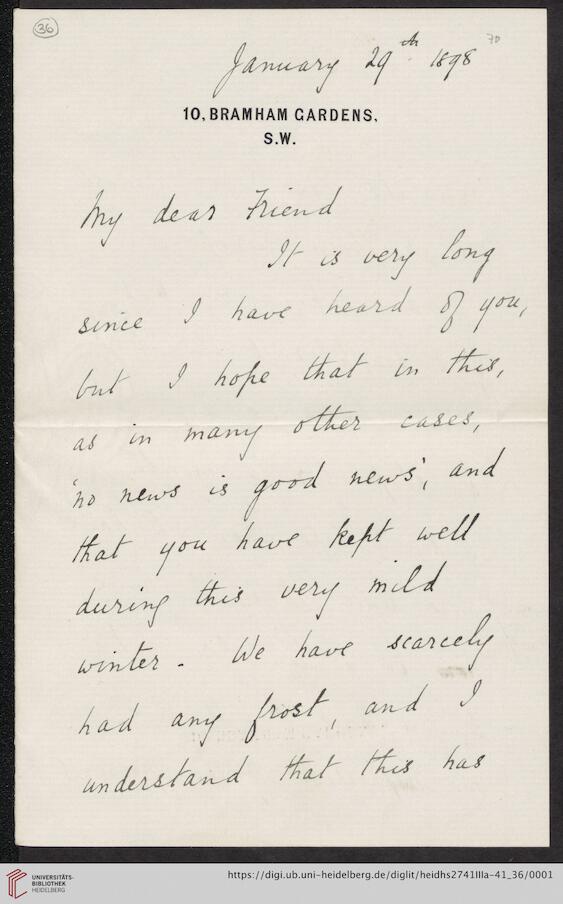 36
70
January 29th. 1898
10, BRAMHAM GARDENS,
S.W.
My dear Friend
It is very long
since I have heard of you,
but I hope that in this,
as in many other cases,
'no news is good news', and
that you have kept well
during this very mild
winter. We have scarcely
had any frost, and I
understand that this has
UNIVERSITÄTS-
BIBLIOTHEK
HEIDELBERG
https://digi.ub.uni-heidelberg.de/diglit/heidhs2741IIIa-41_36/0001